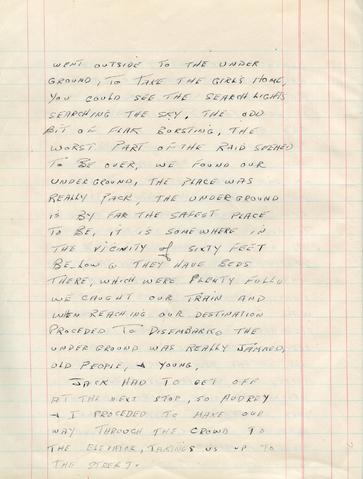 WENT OUTSIDE TO THE UNDER
GROUND, TO TAKE THE GIRLS HOME,
YOU COULD SEE THE SEARCH LIGHTS
SEARCHING THE SKY, THE ODD
BIT OF FLAK BURSTING, THE
WORST PART OF THE RAID SEEMED
TO BE OVER, WE FOUND OUR
UNDERGROUND, THE PLACE WAS
REALLY PACK, THE UNDERGROUND
IS BY FAR THE SAFEST PLACE
TO BE, IT IS SOMEWHERE IN
THE VICINITY of SIXTY FEET
BE-LOW & THEY HAVE BEDS
THERE, WHICH WERE PLENTY FULL,
WE CAUGHT OUR TRAIN AND
WHEN REACHING OUR DESTINATION
PROCEDED TO DISEMBARKO THE
UNDERGROUND WAS REALLY JAMMED,
OLD PEOPLE, + YOUNG,
JACK HAD TO GET OFF
AT THE NEXT STOP, SO AUDREY
+ I PROCEDED TO MAKE OUR
WAY THROUGH THE CROWD TO
THE ELEVATOR, TAKING US UP TO
THE STREET.